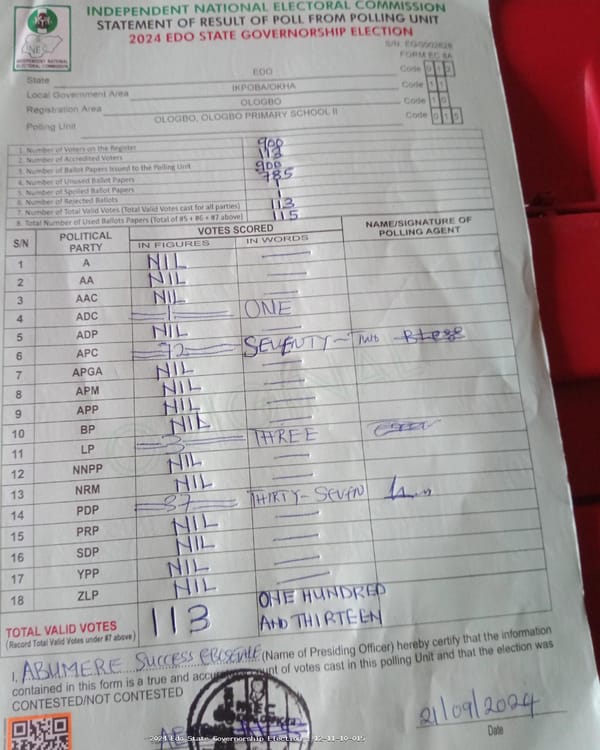 INDEPENDENT NATIONAL ELECTORAL COMMISSION
STATEMENT OF RESULT OF POLL FROM POLLING UNIT
2024 EDO STATE GOVERNORSHIP ELECTION
INEC
INDEPENDENT NATIONAL ELECTORAL COMMISSION
S/N: EG0002628
FORM EC 8A
State EDO Code 0 1 2
Local Government Area IKPOBA/OKHA Code 1 1
Registration Area OLOGBO Code 1 0
Polling Unit OLOGBO, OLOGBO PRIMARY SCHOOL II Code 0 1 5
1. Number of Voters on the Register 900
2. Number of Accredited Voters 113
3. Number of Ballot Papers Issued to the Polling Unit 900
4. Number of Unused Ballot Papers 785
5. Number of Spoiled Ballot Papers 1
6. Number of Rejected Ballots 1
7. Number of Total Valid Votes (Total Valid Votes cast for all parties) 113
8. Total Number of Used Ballots Papers (Total of #5 + #6 + #7 above) 115
S/N POLITICAL PARTY VOTES SCORED NAME/SIGNATURE OF POLLING AGENT
IN FIGURES IN WORDS
1 A NIL
2 AA NIL
3 AAC NIL
4 ADC 1 ONE
5 ADP NIL
6 APC 72 SEVENTY-TWO
7 APGA NIL
8 APM NIL
9 APP NIL
10 BP NIL
11 LP 3 THREE
12 NNPP NIL
13 NRM NIL
14 PDP 37 THIRTY-SEVEN
15 PRP NIL
16 SDP NIL
17 YPP NIL
18 ZLP NIL
TOTAL VALID VOTES 113 ONE HUNDRED AND THIRTEEN
(Record Total Valid Votes under #7 above)
I, ABUMERE SUCCESS (Name of Presiding Officer) hereby certify that the information
contained in this form is a true and account of votes cast in this polling Unit and that the election was
CONTESTED/NOT CONTESTED
21/09/2024
Date
2024 Edo State Governorship Election - 12-11-10-015